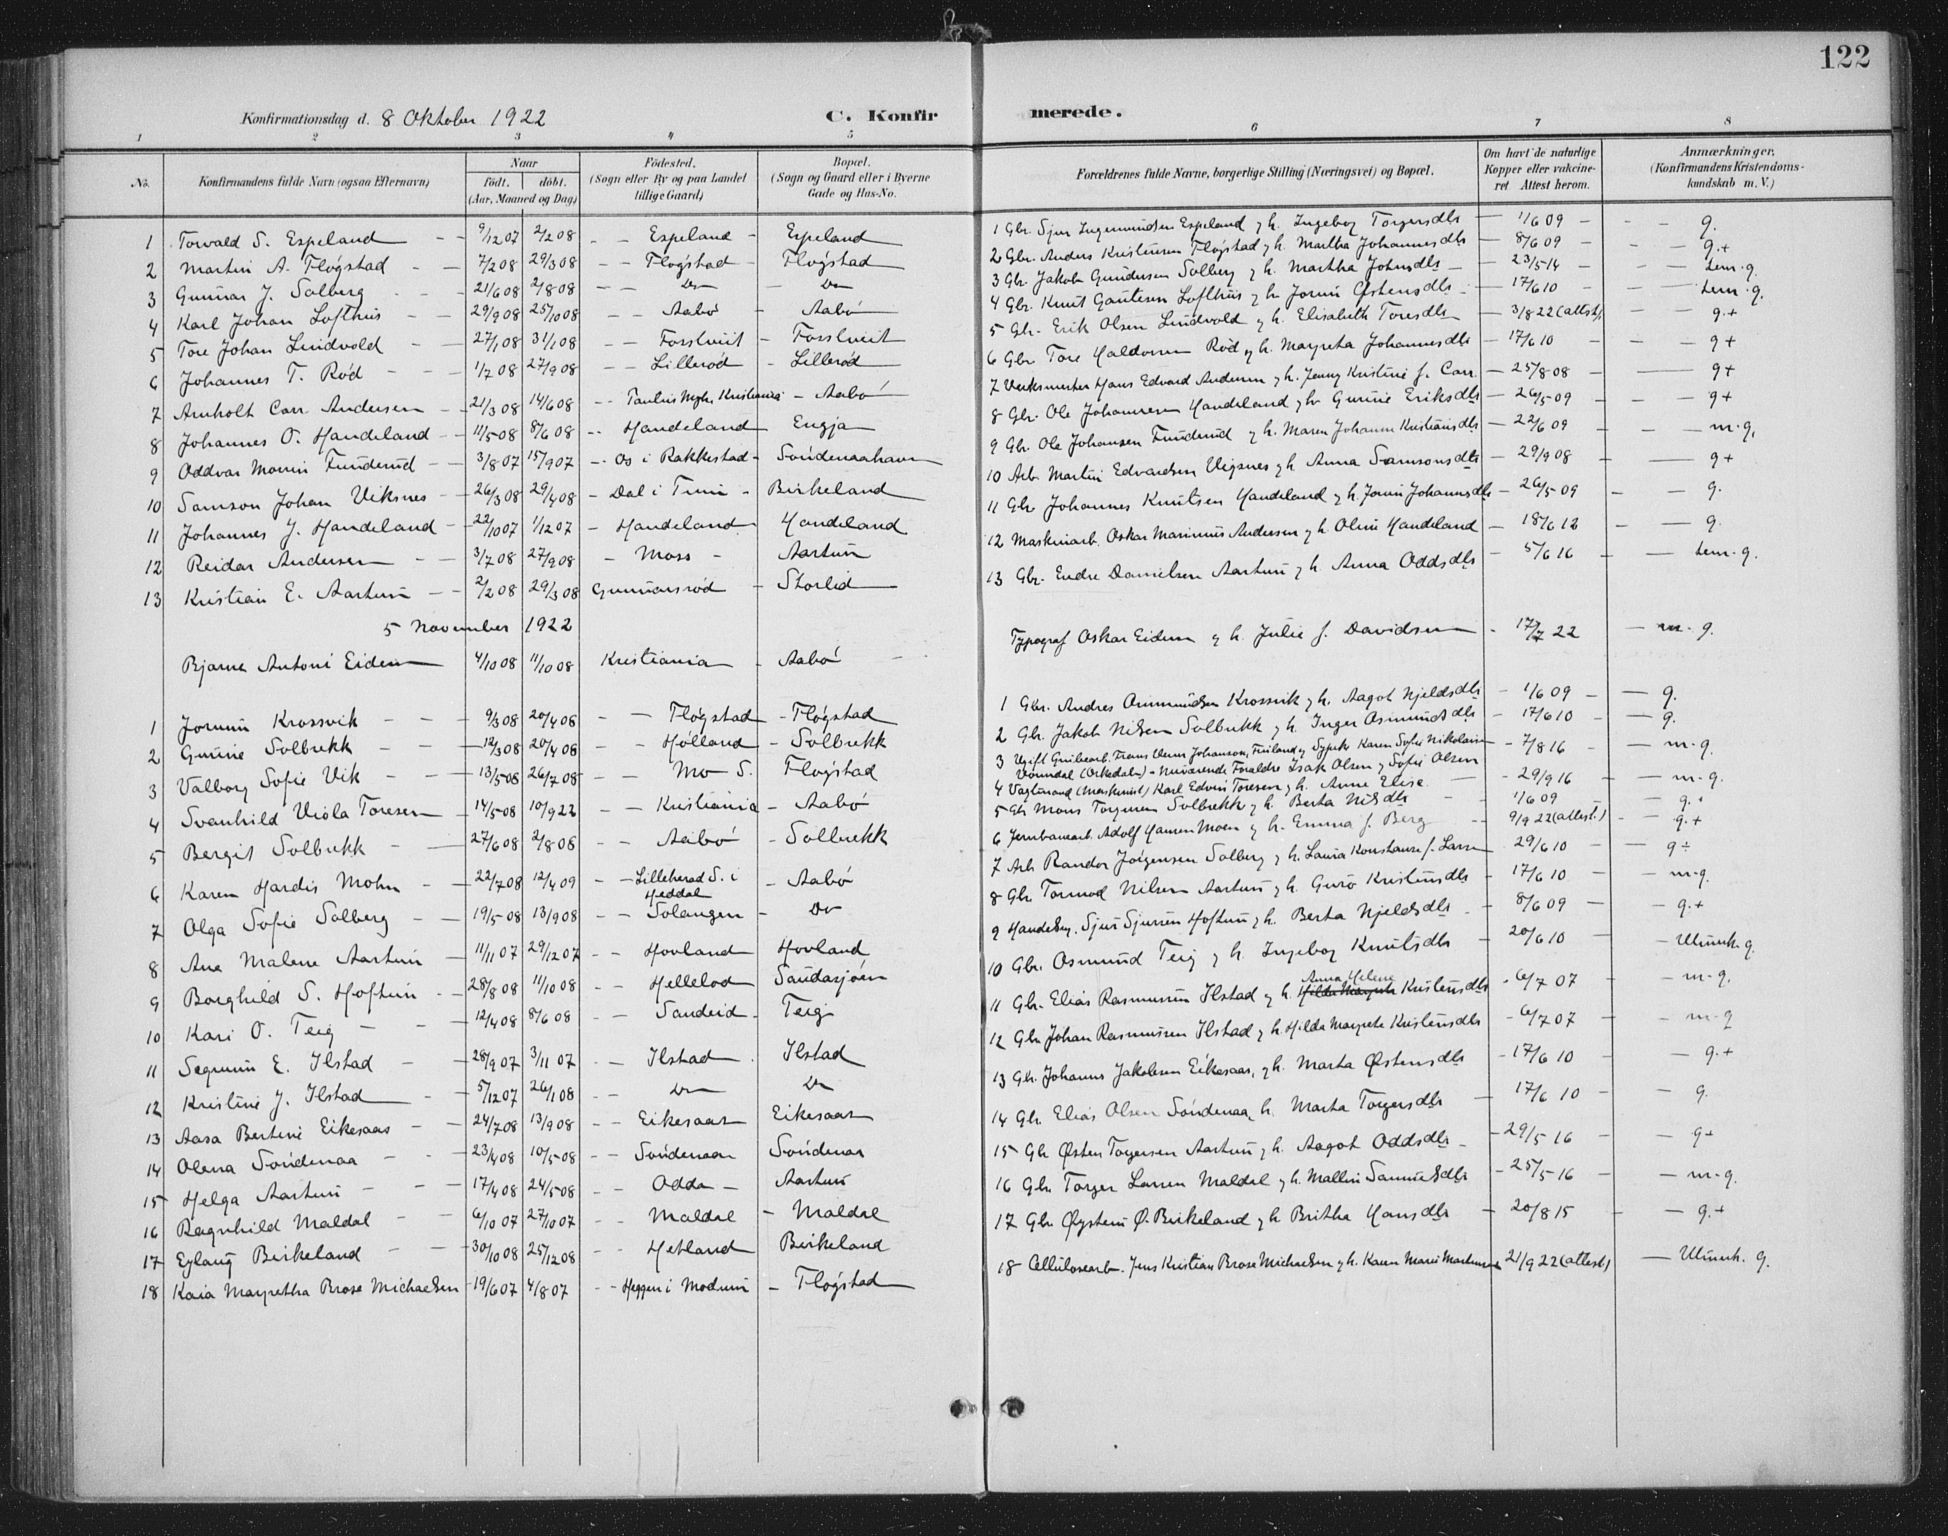 122
Konfirmationsdag d. 8 Oktober 1922 C. Konfirmerede.
1 2 3 4 5 6 7 8
No. Konfirmandens fulde Navn (ogsaa Efternavn) Naar födt. döbt. (Aar, Maaned og Dag) Födested. (Sogn eller By og paa Landet tillige Gaard) Bopæl. (Sogn og Gaard eller i Byerne Gade og Hus-No. Forældrenes fulde Navne, borgerlige Stilling (Næringsvei) og Bopæl. Om havt de naturlige Kopper eller vakcineret Attest herom. Anmærkninger. (Konfirmandens Kristendomskundskab m. V.)
1 Torvald S. Espeland 9/12 07 2/2 08 Espeland Espeland 1 Gbr. Sjur Ingemundsen Espeland og h. Ingeborg Torgersdtr 1/6 09 g.
2 Martin A. Fløgstad 7/2 08 29/3 08 Fløgstad Fløgstad 2 Gbr. Anders Kristensen Fløgstad og h. Martha Johannesdtr 8/6 09 g.+
3 Gunnar J. Solberg 21/6 08 2/8 08 Do Do 3 Gbr. Jakob Gundersen Solberg og h. Martha Johnsdtr 23/5 14 tem. g.
4 Karl Johan Lofthus 29/9 08 25/10 08 Aabø Aabø 4 Gbr. Knut Gautesen Lofthus og h. Jorun Østensdtr 17/6 10 tem. g.
5 Tore Johan Lindvold 27/1 08 31/1 08 Fosstveit Fosstveit 5 Gbr. Erik Olsen Lindvold og h. Elisabeth Toresdtr 3/8 22 (attest) g.+
6 Johannes T. Rød 1/7 08 27/9 08 Lillerød Lillerød 6 Gbr Tore Haldorsen Rød og h. Margreta Johannesdtr 17/6 10 g+
7 Arnholt Carr. Andersen 21/3 08 14/6 08 Paulus Mgh. Kristiania Aabø 7 Verksmester Hans Edvard Andersen og h. Jenny Kristine f. Carr. 25/8 08 g+
8 Johannes O. Handeland 11/5 08 8/6 08 Handeland Engja 8 Gbr. Ole Johannesen Handeland og h. Gurine Eriksdtr 26/5 09 g+
9 Oddvar Funderud 3/8 07 15/9 07 Os i Rakkestad Søndenaahavn 9 Gbr. Ole Johansen Funderud og h. Maren Johanne Kristiansdtr 22/6 09 m.g.
10 Samson Johan Viksnes 26/3 08 29/4 08 Dal i Tinn Birkeland 10 Arb. Martin Edvardsen Vigsnes og h. Anna Samsonsdtr 29/9 08 g+
11 Johannes J. Handeland 22/10 07 1/12 07 Handeland Handeland 11 Gbr Johannes Knutsen Handeland og h. Jorun Johannesdtr 26/5 09 g.
12 Reidar Andersen 3/7 08 27/9 08 Moss Aartun 12 Maskinarb. Oskar Marinius Andersen og h. Oline Handeland 18/6 12 g.
13 Kristian E. Aartun 2/2 08 29/3 08 Gunnarsrød Storlid 13 Gbr. Endre Danielsen Aartun og h. Anna Oddsdtr 5/6 16 tem. g.
5 November 1922
Bjarne Antoni Eidem 4/10 08 11/10 08 Kristiania Aabø Typograf Oskar Eidem og h. Julie f. Davidsen 17/7 22 m. g.
1 Jorunn Krossvik 9/3 08 20/4 08 Fløgstad Fløgstad 1 Gbr. Andres Ommundsen Krossvik og h. Aagot Njeldsdtr 1/6 09 g.
2 Gurine Solbrekk 12/3 08 20/4 08 Hølland Solbrekk 2 Gbr. Jakob Nilsen Solbrekk og h. Inger Osmundsdtr 17/6 10 g.
3 Valborg Sofie Vik 13/5 08 26/7 08 Mo S. Fløgstad 3 Ugift Frans Johanson, Finland og Sypike Karen Sofie Nikolaisen (Orkedalen) - Nuværende Foreldre Isak Olsen og Sofie Olsen 7/8 16 m.g.
4 Svanhild Viola Toresen 14/5 08 10/9 22 Kristiania Aabø 4 Vagtmand (Maskinist) Karl Edvin Toresen og h. Anne Elise 29/9 16 m.g.
5 Bergit Solbrekk 27/6 08 2/8 08 Aabø Solbrekk 5 Gbr Mons Torgersen Solbrekk og h. Berta Nilsdtr 1/6 09 g.+
6 Karen Hardis Mohn 22/7 08 12/4 09 Lilleherad S. i Heddal Aabø 6 Jernbanearb. Adolf Hansen Moen og h. Emma f. Berg 9/9 22 (attest.) g.+
7 Olga Sofie Solberg 19/5 08 13/9 08 Solangen Do 7 Arb Randor Jørgensen Solberg og h. Laura Konstanse f. Larsen 29/6 10 g+
8 Ane Malene Aartun 11/11 07 29/12 07 Hovland Hovland 8 Gbr Tormod Nilsen Aartun og h. Guro Kristensdtr 17/6 10 m.g.
9 Borghild S. Hoftun 28/8 08 11/10 08 Hellelod Saudasjøen 9 Handelsm. Sjur Sjursen Hoftun og h. Berta Njeldsdtr 8/6 09 g.+
10 Kari O. Teig 12/4 08 8/6 08 Sandeid Teig 10 Gbr. Osmund Teig og h. Ingeborg Knutsdtr 20/6 10 Utmerk. g.
11 Segrunn E. Ilstad 28/9 07 3/11 07 Ilstad Ilstad 11 Gbr. Elias Rasmussen Ilstad og h. Hilda Margrete Anna Helene Kristensdtr 6/7 07 m.g.
12 Kristine J. Ilstad 5/12 07 26/1 08 Do Do 12 Gbr Johan Rasmussen Ilstad og h. Hilda Margrete Kristensdtr 6/7 07 m.g
13 Aasa Bertine Eikesaas 24/7 08 13/9 08 Eikesaas Eikesaas 13 Gbr. Johannes Jakobsen Eikesaas, og h. Marta Østensdtr 17/6 10 g.+
14 Olena Søndenaa 23/4 08 10/5 08 Søndenaa Søndenaa 14 Gbr Elias Olsen Søndenaa, h. Marta Torgersdtr 17/6 10 g.
15 Helga Aartun 17/4 08 24/5 08 Odda Aartun 15 Gbr Østen Torgersen Aartun og h. Aagot Oddsdtr 29/5 16 g+
16 Ragnhild Maldal 6/10 07 27/10 07 Maldal Maldal 16 Gbr. Torger Larsen Maldal og h. Mallin Samuelsdtr 25/5 16 m.g.
17 Eylaug Birkeland 30/10 08 25/12 08 Hetland Birkeland 17 Gbr Øystein Ø. Birkeland og h Britha Hansdtr 20/8 15 g.+
18 Kaia Margretha Brose Michaelsen 19/6 07 4/8 07 Heggen i Modum Fløgstad 18 Cellulosearb. Jens Kristian Brose Michaelsen og h. Karen Marie Martinsen 21/9 22 (attest) Utmerk. g.